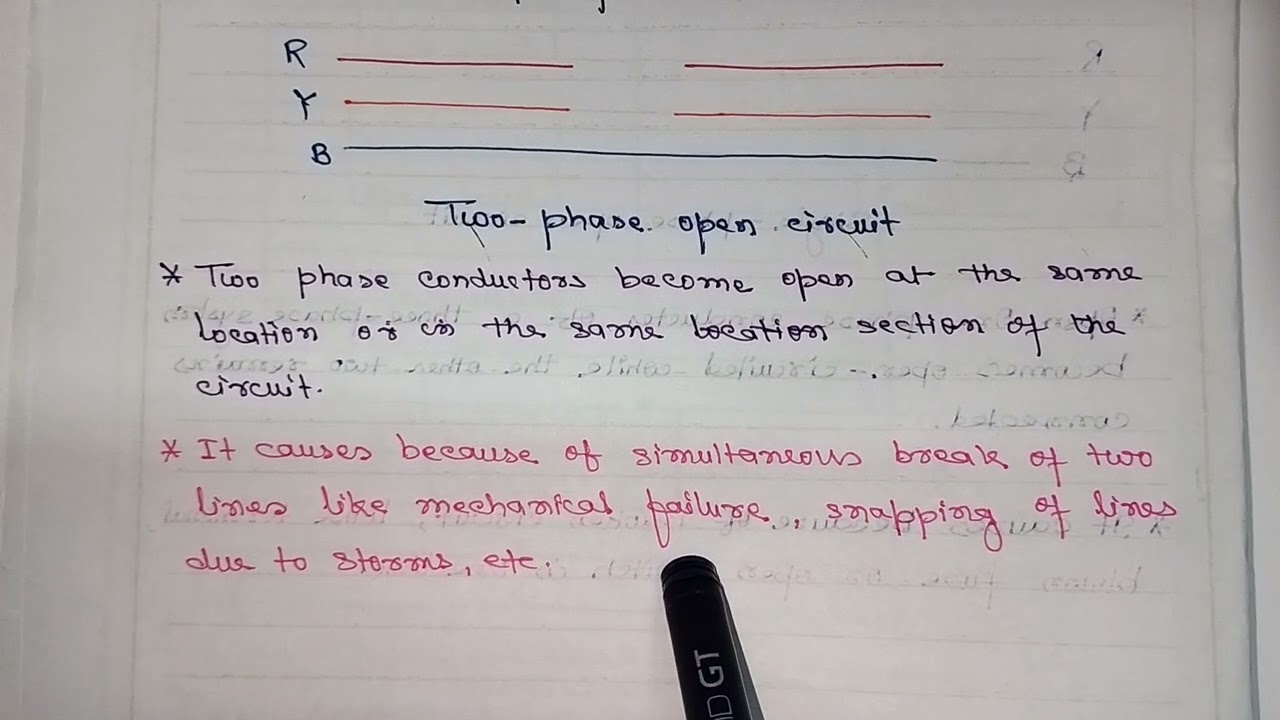 R
Y
B
Two-phase open circuit
* Two phase conductors become open at the same
location or in the same location section of the
circuit.
* It causes because of simultaneous break of two
lines like mechanical failure, snapping of lines
due to storms, etc.
GT